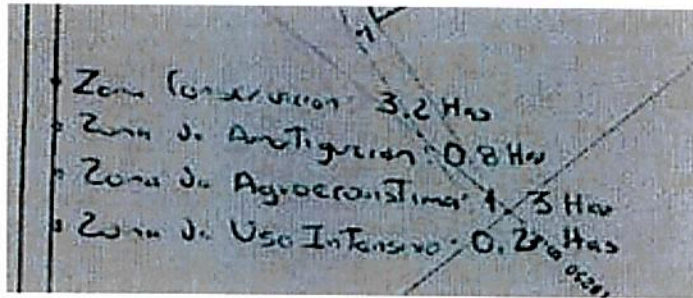 • Zona Conservacion: 3.2 Has
• Zona de Amotiguacion: 0.8 Has
• Zona de Agroecosistema: 1.3 Has
• Zona de Uso Intensivo: 0.2 Has